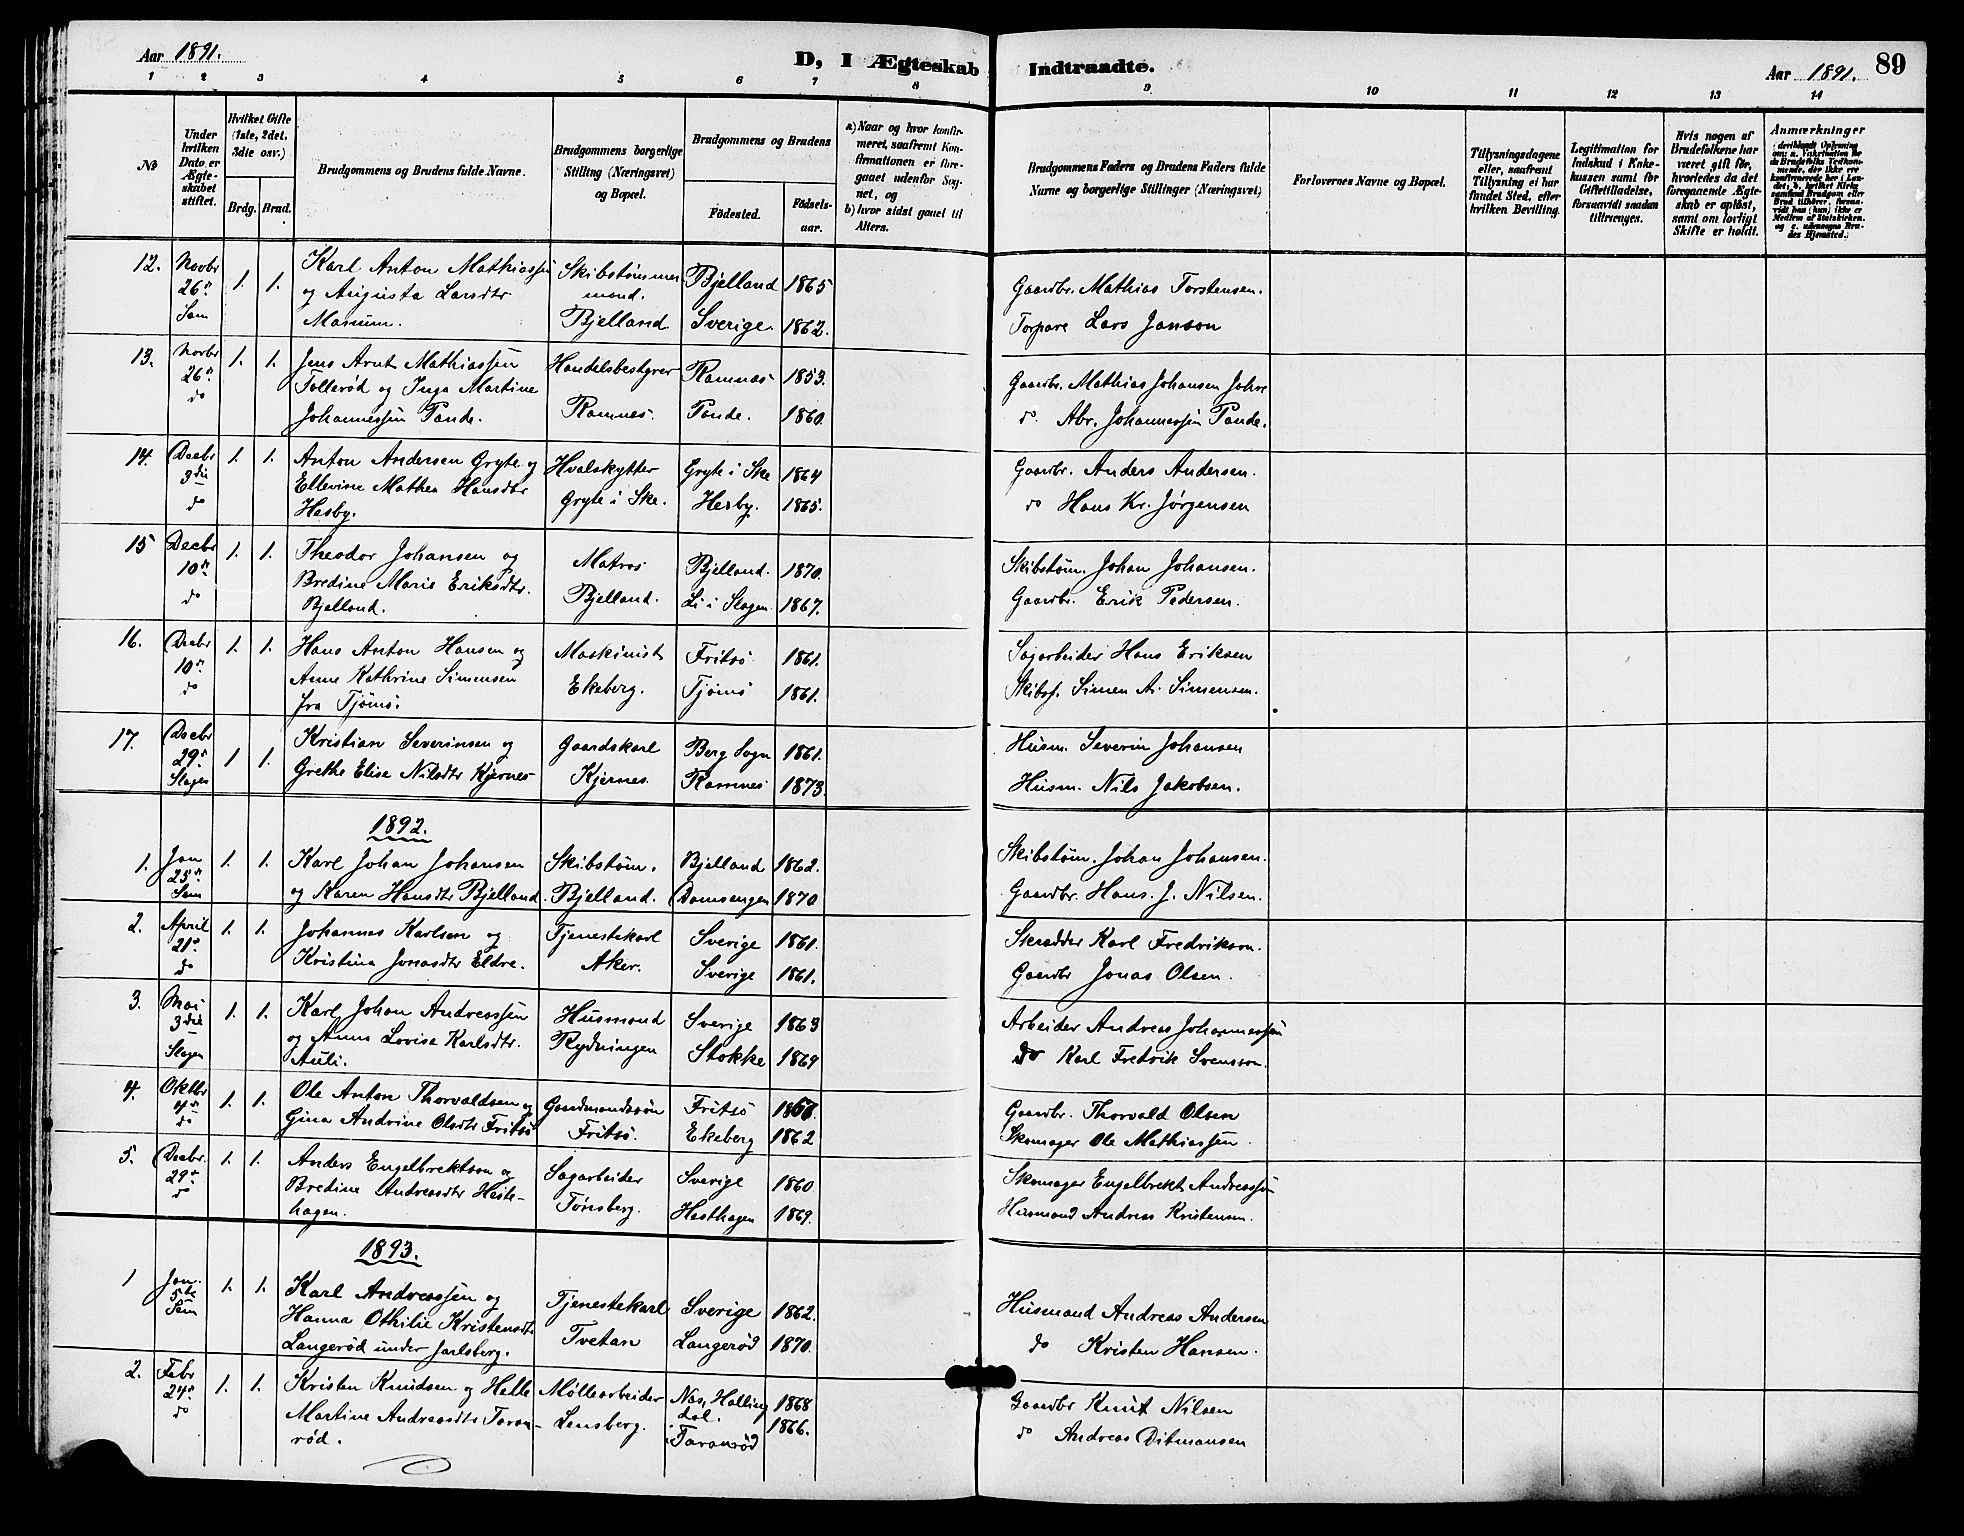 Aar 1891.
D, I Ægteskab Indtraadte.
Aar 1891. 89
1 2 3 4 5 6 7 8 9 10 11 12 13 14
No
Under hvilken Dato er Ægteskabet stiftet.
Hvilket Gifte (1ste, 2det, 3die osv.)
Brdg. Brud.
Brudgommens og Brudens fulde Navne.
Brudgommens borgerlige Stilling (Næringsvei) og Bopæl.
Brudgommens og Brudens
Födested. Födsels-aar.
a) Naar og hvor konfirmeret, saafremt Konfirmationen er foregaaet udenfor Sognet, og
b) hvor sidst gaaet til Alters.
Brudgommens Faders og Brudens Faders fulde Navne og borgerlige Stillinger (Næringsvei)
Forlovernes Navne og Bopæl.
Tillysningsdagene eller, saafremt Tillysning ei har fundet Sted, efter hvilken Bevilling.
Legitimation for Indskud i Enkekassen samt for Giftetilladelse, forsaavidt saadan tiltrænges.
Hvis nogen af Brudefolkene har været gift før, hvorledes da det foregaaende Ægteskab er opløst, samt om lovligt Skifte er holdt.
Anmærkninger
12. Novbr 26de Sem 1. 1. Karl Anton Mathiassen og Augusta Larsdtr Skibstømmermand. Bjelland. Bjelland 1865 Sverige. 1862. Gaardbr. Mathias Torstensen. Torpare Lars Janson
13. Novbr 26de do 1. 1. Jens Arnt Mathiassen Tollerød og Inga Martine Johannessen Pande. Handelsbestyrer Ramnes. Ramnæs 1853. Pande. 1860. Gaardbr. Mathias Johansen Johre do Abr. Johannessen Pande.
14. Decbr 3die do 1. 1. Anton Andersen Gryte og Ellevine Mathea Hansdtr Hesby. Hvalskytter Gryte i Ske. Gryte i Ske 1864 Hesby. 1865. Gaardbr. Anders Andersen. do Hans Kr. Jørgensen
15 Decbr 10de do 1. 1. Theodor Johansen og Bredine Marie Eriksdtr. Bjelland. Matros Bjelland. Bjelland. 1870. Li i Slagen 1867. Skibstøm. Johan Johansen. Gaardbr. Erik Pedersen.
16. Decbr 10de do 1. 1. Hans Anton Hansen og Anne Kathrine Simensen fra Tjømø. Maskinist Ekeberg. Fritsø. 1861. Tjømø 1861. Sagarbeider Hans Eriksen Skibsf. Simen A. Simensen.
17. Decbr 29de Slagen 1 1. Kristian Severinsen og Grethe Elise Nilsdtr Kjernes Gaardskarl Kjernes. Berg Sogn 1861. Ramnes 1873. Husm. Severin Johansen Husm. Nils Jakobsen.
1892.
1. Jan 25de Sem 1. 1. Karl Johan Johansen og Karen Hansdtr Bjelland. Skibstøm. Bjelland. Bjelland 1862. Damsengen 1870 Skibstøm. Johan Johansen. Gaardbr. Hans. J. Nilsen.
2. April 21de do 1. 1. Johannes Karlsen og Kristina Jonasdtr Eldre. Tjenestekarl Aker. Sverige 1861. Sverige 1861. Skrædder Karl Fredrikson. Gaardbr Jonas Olsen.
3. Mai 3die Slagen 1. 1. Karl Johan Andreassen og Anna Lovise Karlsdtr. Auli. Husmand Rydningen Sverige 1863 Stokke 1869 Arbeider Andreas Johannessen do Karl Fredrik Svensson.
4. Oktbr do 1. 1. Ole Anton Thorvaldsen og Gina Andrine Olsdtr Fritsø Gaardmandssøn Fritsø. Fritsø 1867. Ekeberg 1862 Gaardbr. Thorvald Olsen Skomager Ole Mathiassen.
5. Decbr. 29de do 1. 1. Anders Engelbrektson og Bredine Andreasdtr Hesthagen. Sagarbeider Tønsberg. Sverige 1860 Hesthagen 1869. Skomager Engelbrekt Andreassøn Husmand Andreas Kristensen.
1893.
1 Jan. 5te Sem 1. 1. Karl Andreassen og Hanna Othilie Kristensdtr Langerød under Jarlsberg. Tjenestekarl Tvetan Sverige 1862. Langerød 1870. Husmand Andreas Andersen do Kristen Hansen.
2. Febr 24de do 1. 1. Kristen Knudsen og Helle Martine Andreasdtr Taranrød. Møllearbeider Lensberg. Nas, Hallingdal. 1868 Taranrød 1866. Gaardbr Knut Nilsen do Andreas Ditmansen